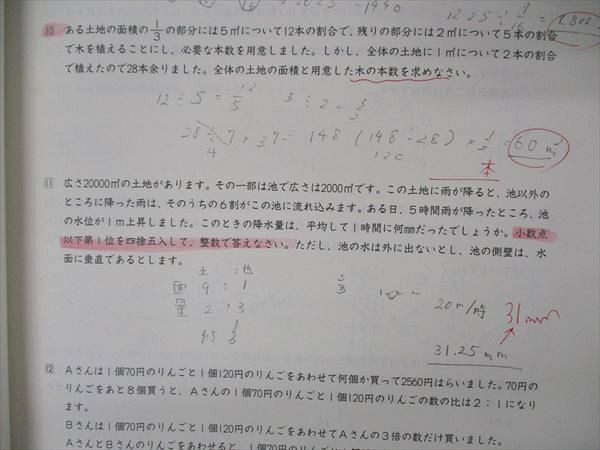 1225÷
1440
10 ある土地の面積の1/3の部分には5㎡について12本の割合で、残りの部分には2㎡について5本の割合
で木を植えることにし、必要な本数を用意しました。しかし、全体の土地に1㎡について2本の割合
で植えたので28本余りました。全体の土地の面積と用意した木の本数を求めなさい。
12÷5=12/5
28÷7/4×37=148 (148-28)×1/2=60㎡
120
本
11 広さ20000㎡の土地があります。その一部は池で広さは2000㎡です。この土地に雨が降ると、池以外の
ところに降った雨は、そのうちの6割がこの池に流れ込みます。ある日、5時間雨が降ったところ、池
の水位が1m上昇しました。このときの降水量は、平均して1時間に何㎜だったでしょうか。小数点
以下第1位を四捨五入して、整数で答えなさい。ただし、池の水は外に出ないとし、池の側壁は、水
面に垂直であるとします。
土 : 池
面 9 : 1
量 2 : 3
45 1/3
20m/時
31mm
31.25mm
12 Aさんは1個70円のりんごと1個120円のりんごをあわせて何個か買って2560円はらいました。70円の
りんごをあと8個買うと、Aさんの1個70円のりんごと1個120円のりんごの数の比は2:1になり
ます。
Bさんは1個70円のりんごと1個120円のりんごをあわせてAさんの3倍の数だけ買いました。
AさんとBさんのりんごをあわせると、1個70円のりんご